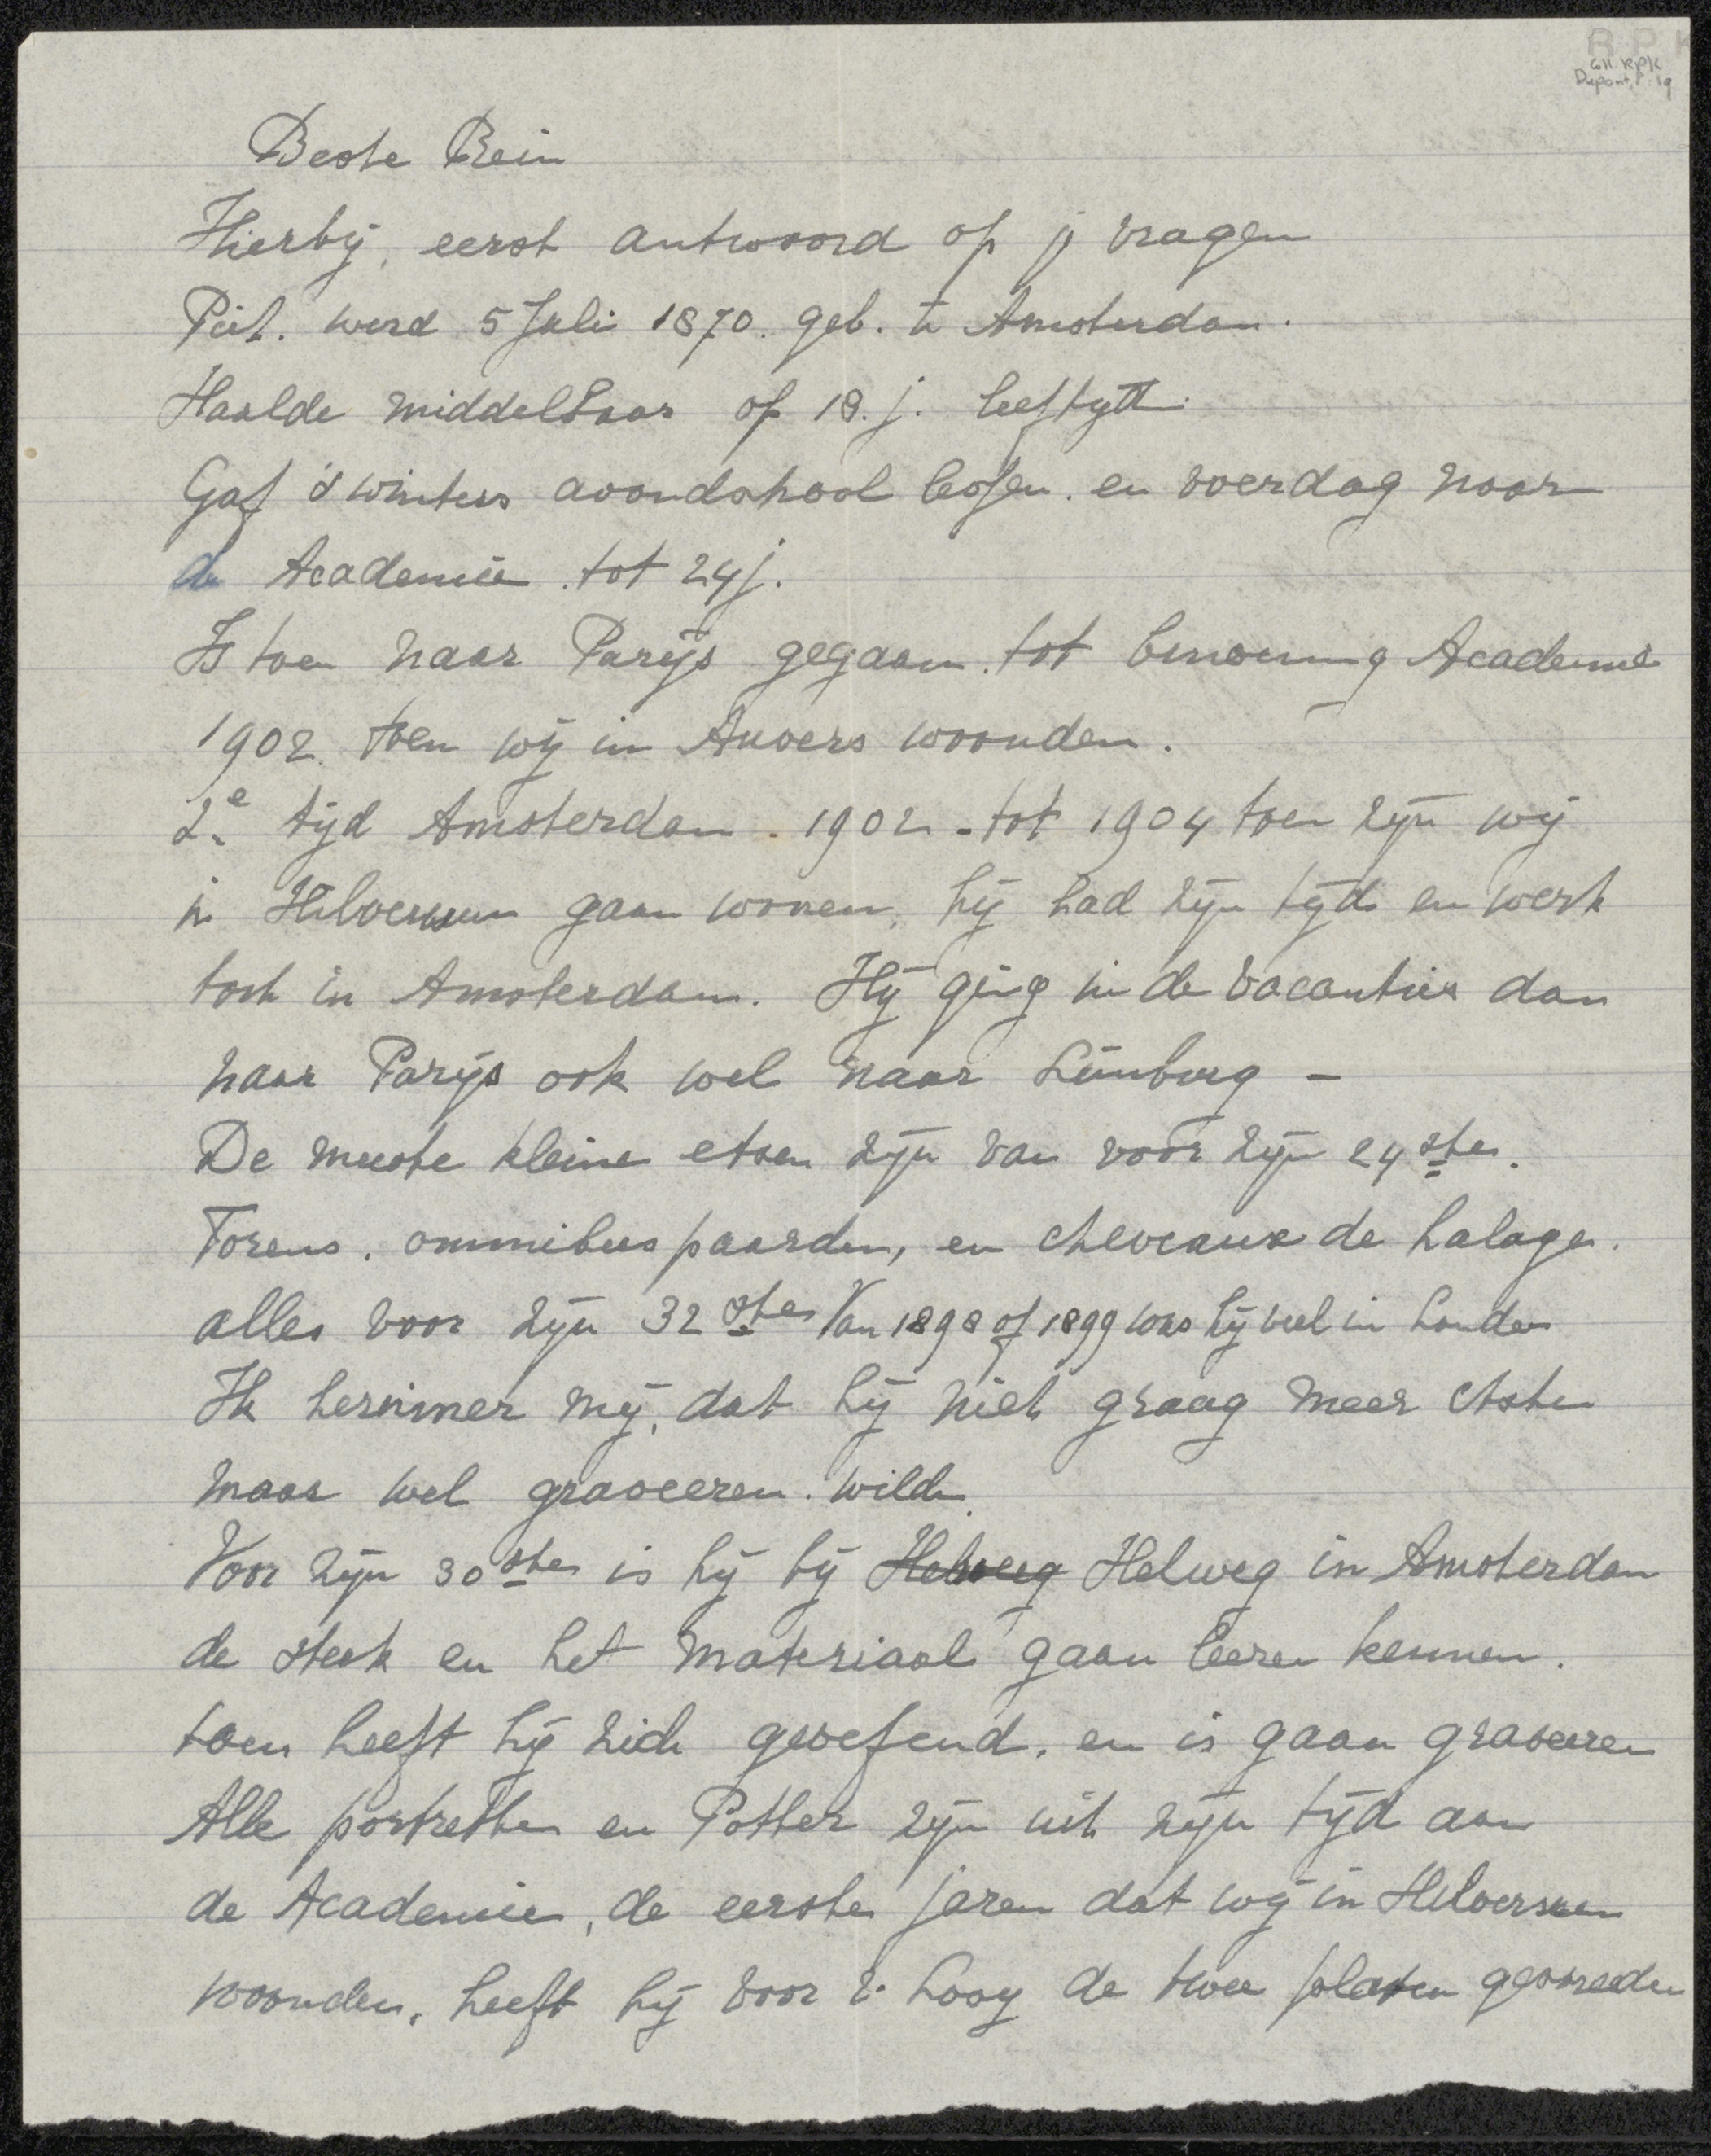 R P K
GH. RPK
Dupont, P. 19
Beste Rein
Hierbij, eerst antwoord op je vragen
Piet. werd 5 Juli 1870. geb. te Amsterdam.
Haalde middelbaar op 18. j. leeftijd.
Gaf 's winters avondschool lessen. en overdag naar
de Academie. tot 24 j.
Is toen naar Parijs gegaan. tot benoeming Academie
1902. toen wij in Auvers woonden.
2e tijd Amsterdam. 1902 - tot 1904 toen zijn wij
in Hilversum gaan wonen, hij had zijn tijd en werk
toch in Amsterdam. Hij ging in de vacanties dan
naar Parijs ook wel naar Limburg -
De meeste kleine etsen zijn van voor zijn 24ste.
Torens, omnibus paarden, en chevaux de halage.
alles voor zijn 32ste Van 1898 of 1899 was hij veel in Londen
Ik herinner mij, dat hij niet graag meer etste
maar wel graveeren. wilde.
Voor zijn 30ste is hij bij Helweg Helweg in Amsterdam
de steek en het materiaal gaan leeren kennen.
toen heeft hij zich geoefend, en is gaan graveeren
Alle portretten en Potter zijn uit zijn tijd aan
de Academie, de eerste jaren dat wij in Hilversum
woonden, heeft hij voor v. Looy de twee platen gesneden